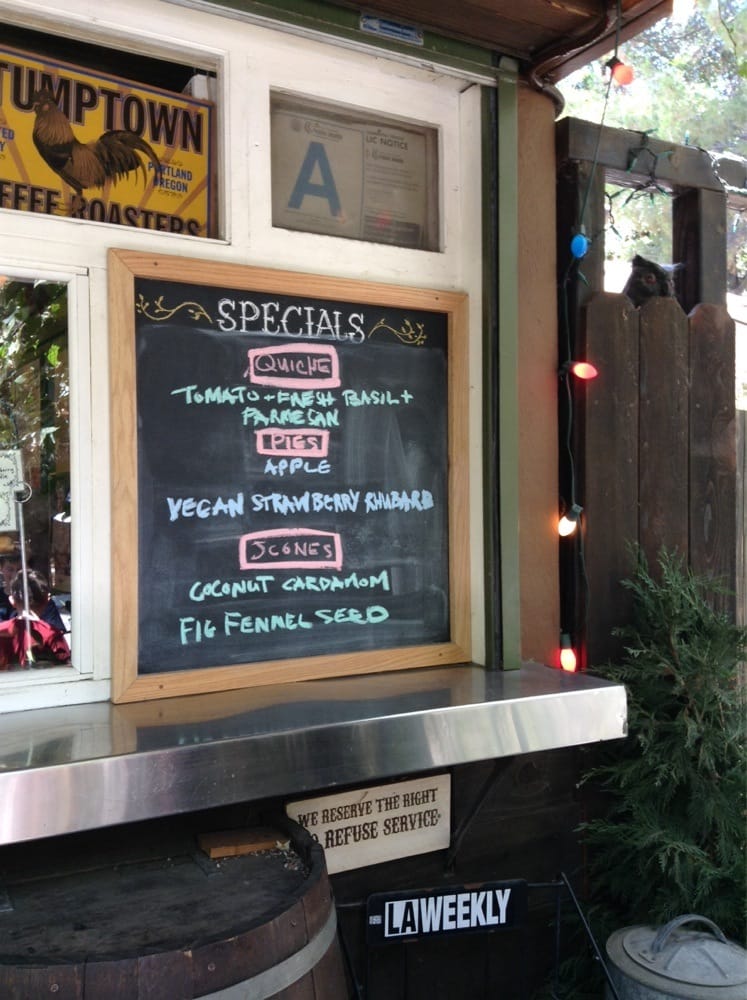 TUMPTOWN
PORTLAND
OREGON
FFEE ROASTERS
A
LIC NOTICE
SPECIALS
QUICHE
TOMATO + FRESH BASIL +
PARMESAN
PIES
APPLE
VEGAN STRAWBERRY RHUBARB
SCONES
COCONUT CARDAMOM
FIG FENNEL SEED
WE RESERVE THE RIGHT
O REFUSE SERVICE
LAWEEKLY